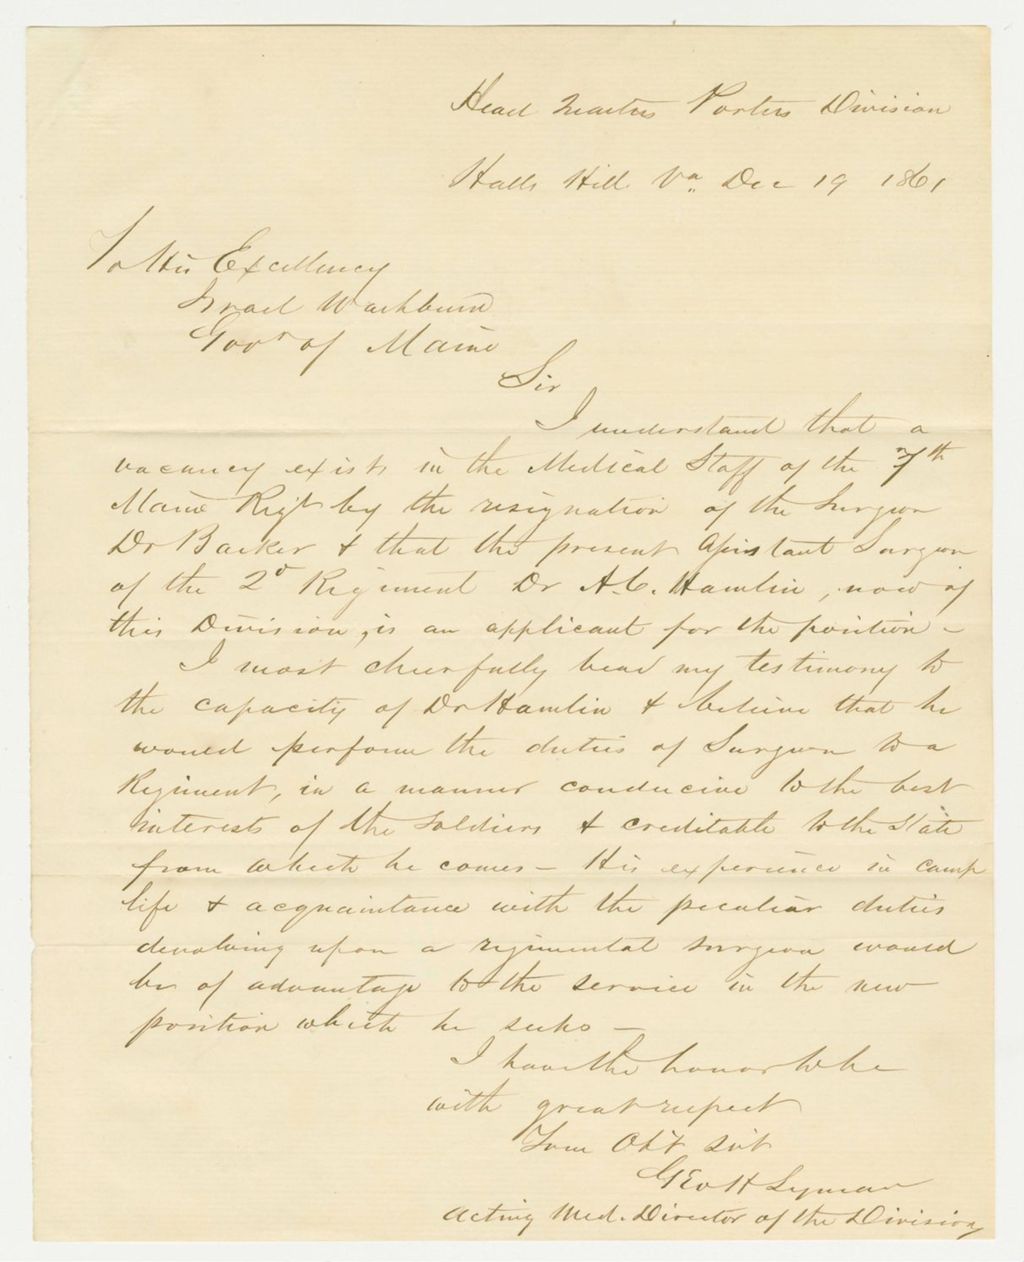 Head Quarters Porters Division
Halls Hill Va. Dec 19 1861
To His Excellency
Israel Washburn
Govr of Maine
Sir
I understand that a
vacancy exists in the Medical Staff of the 7th
Maine Regt by the resignation of the Surgeon
Dr Barker & that the present Assistant Surgeon
of the 2d Regiment Dr A.C. Hamlin, now of
this Division, is an applicant for the position –
I most cheerfully bear my testimony to
the capacity of Dr Hamlin & believe that he
would perform the duties of Surgeon to a
Regiment, in a manner conducive to the best
interests of the soldiers & creditable to the State
from which he comes – His experience in camp
life & acquaintance with the peculiar duties
devolving upon a regimental surgeon would
be of advantage to the service in the new
position which he seeks –
I have the honor to be
with great respect
Your Obt svt
Geo H Lyman
Acting Med. Director of the Division